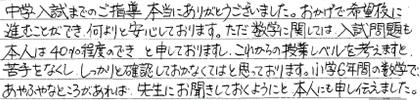 中学入試までのご指導 本当にありがとうございました。おかげで希望校に
進むことができ 何よりと安心しております。ただ数学に関しては、入試問題も
本人は40%程度のでき と申しております。これからの授業レベルを考えますと、
苦手をなくし しっかりと確認しておかなくてはと思っております。小学6年間の数学で
あやふやなところがあれば 先生にお聞きしておくようにと 本人にも申し伝えました。